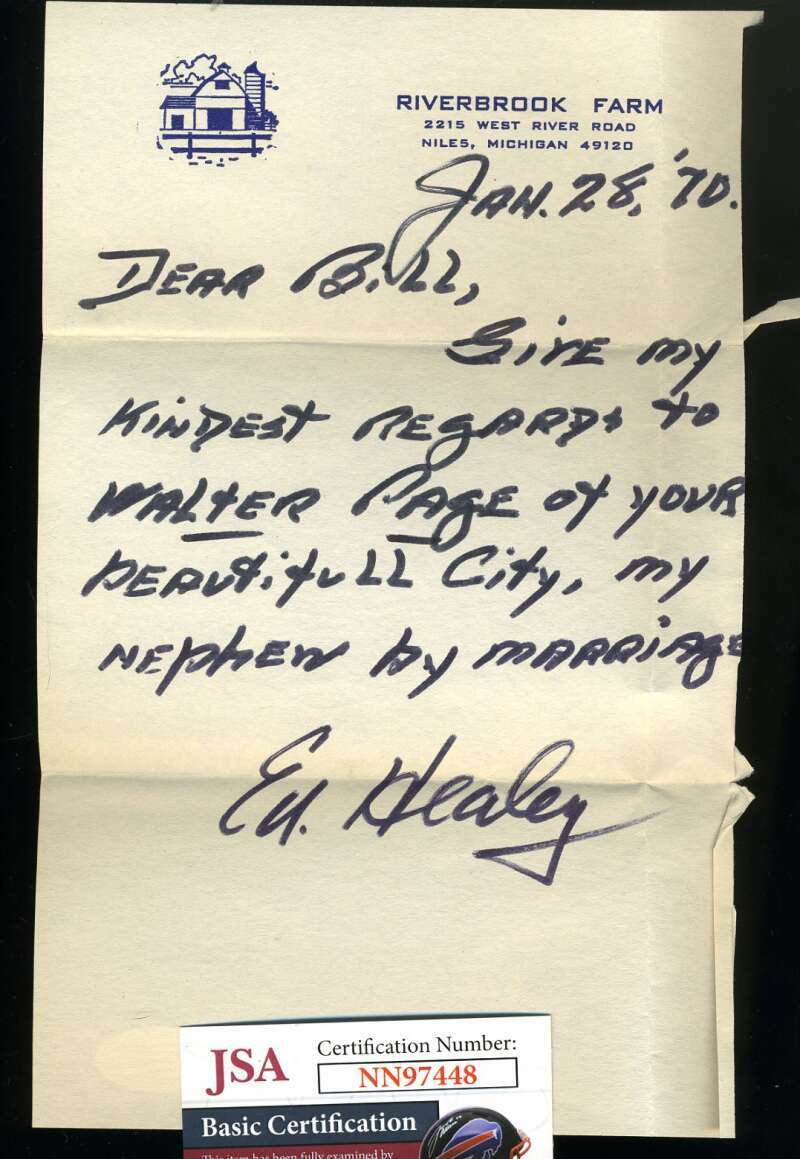 RIVERBROOK FARM
2215 WEST RIVER ROAD
NILES, MICHIGAN 49120
JAN. 28, '70.
DEAR BILL,
GIVE my
KINDEST REGARDS to
WALTER PAGE of YOUR
BEAUtifuLL City, my
NEphEW by mARRiAgE
Ed. Healey
JSA
Certification Number:
NN97448
Basic Certification
This item has been fully examined by